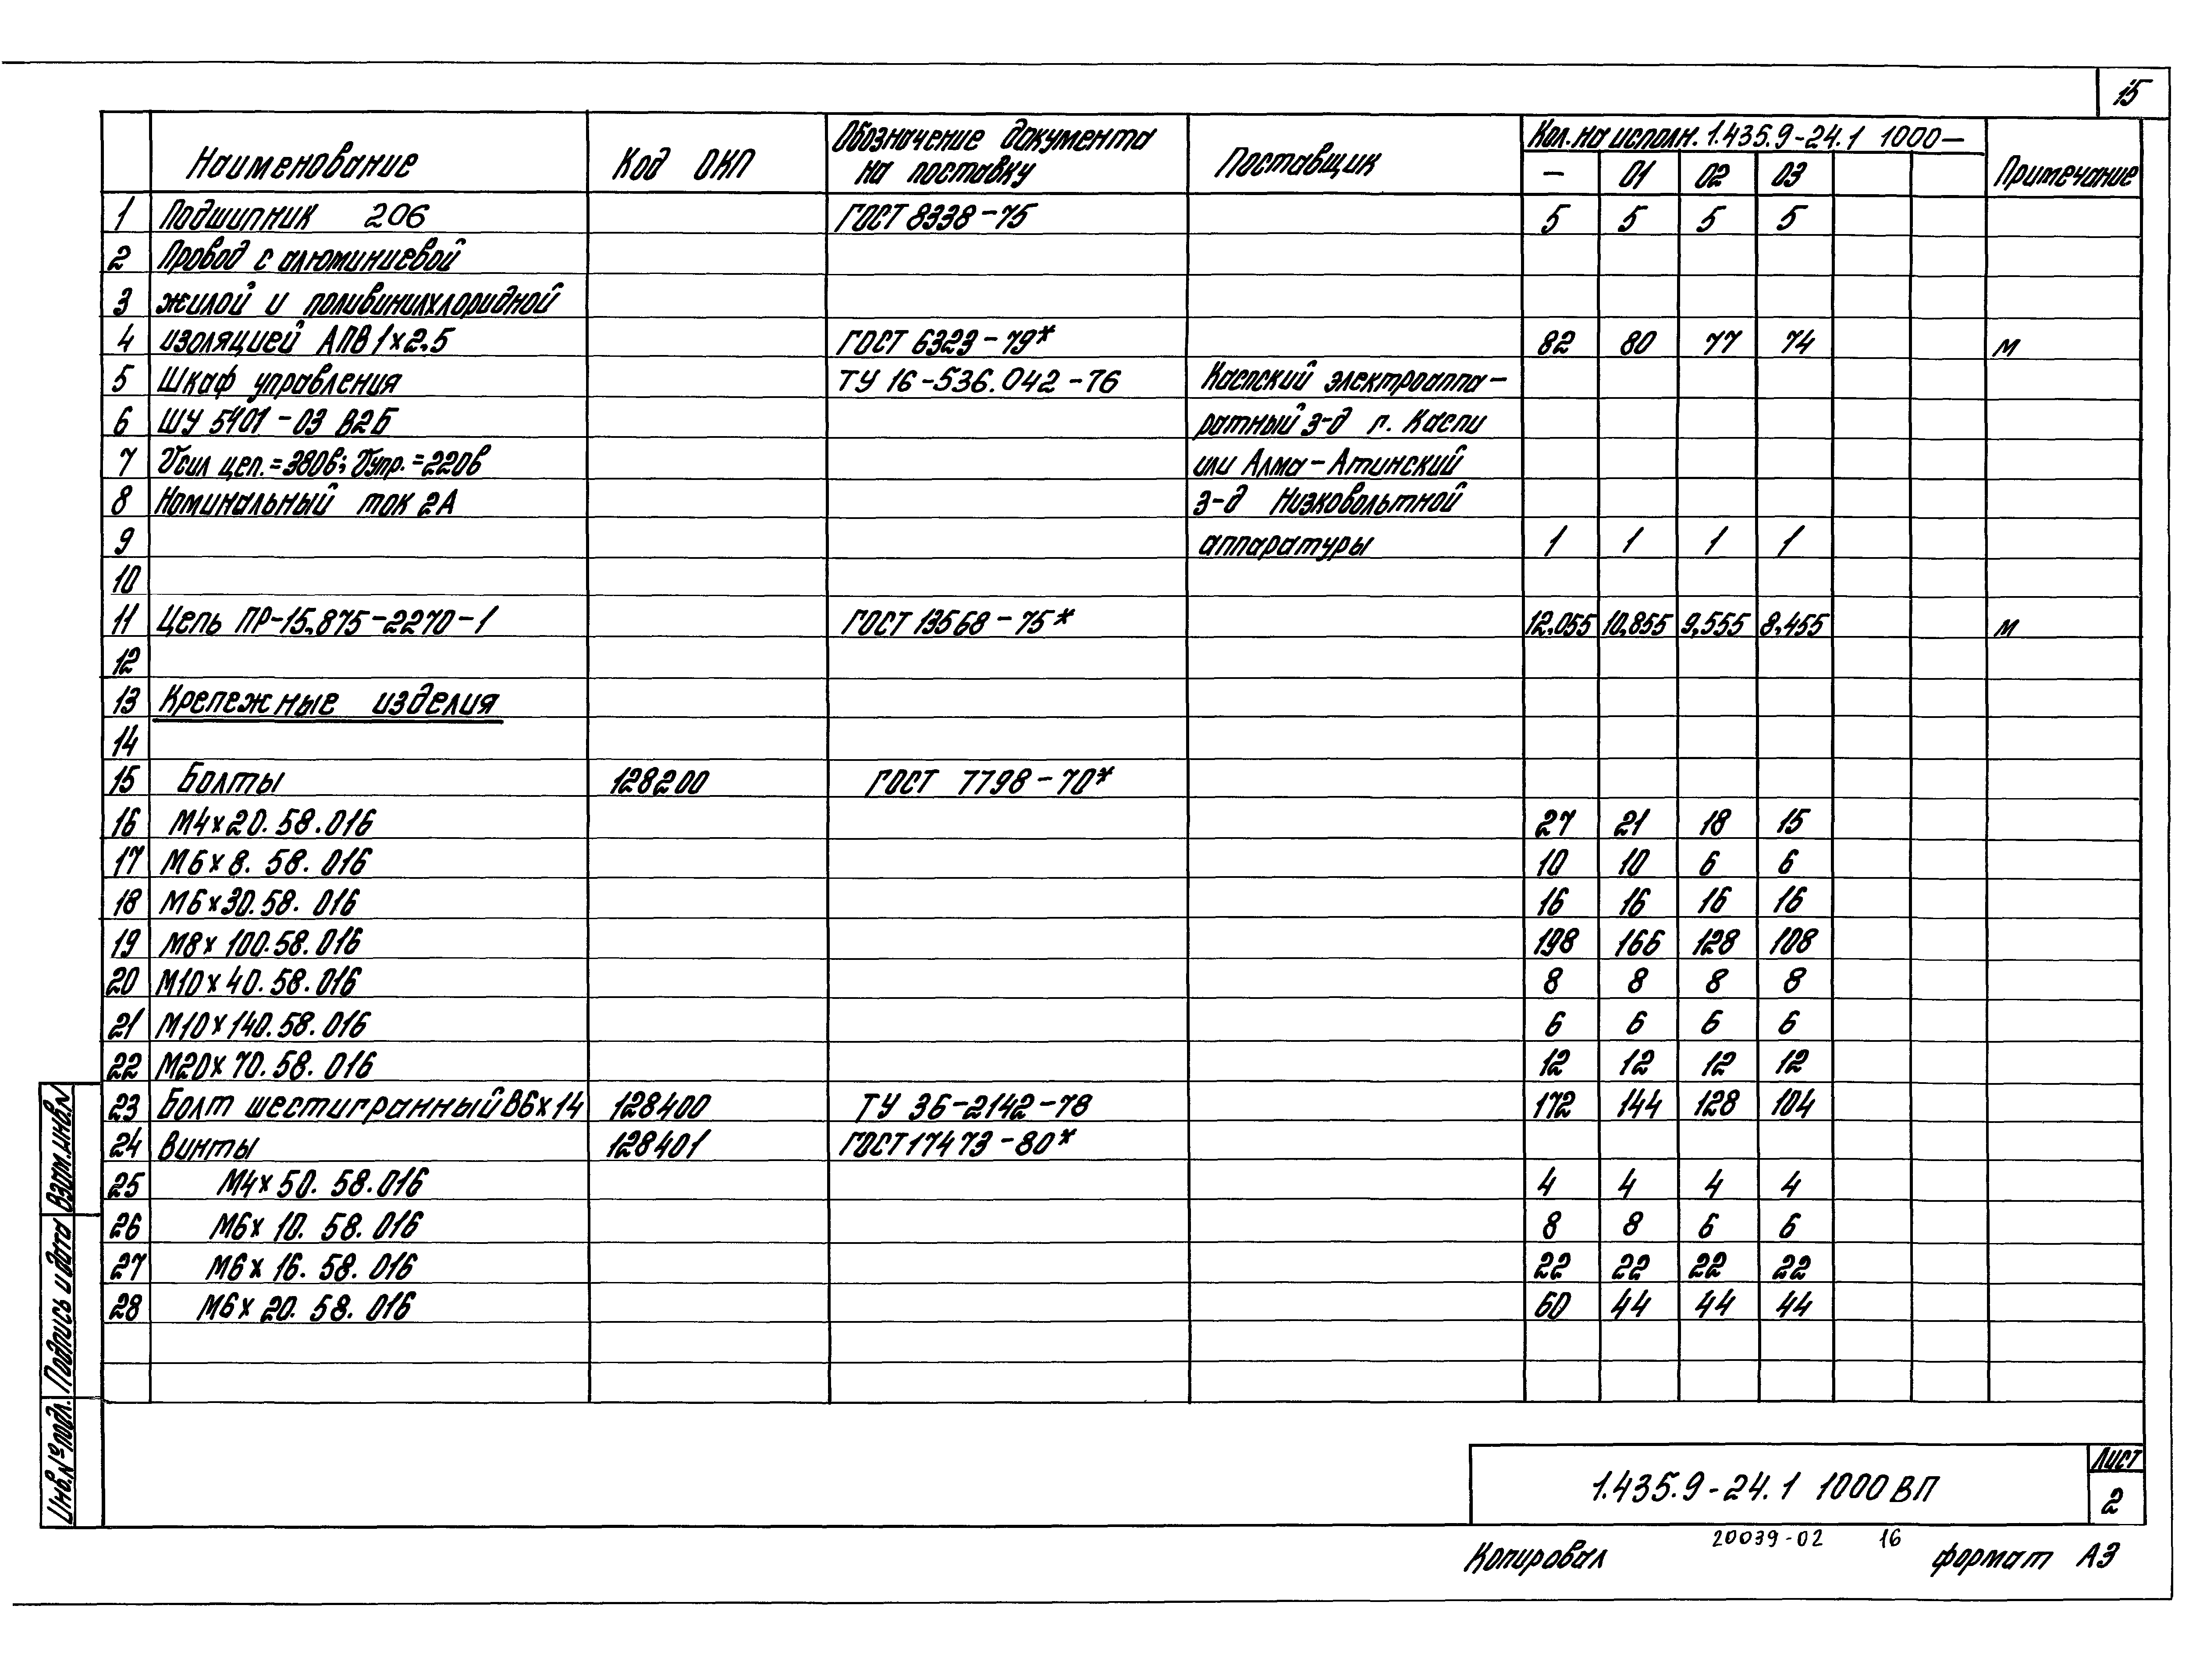 15
Наименование Код ОКП Обозначение документа на поставку Поставщик Кол. на исполн. 1.435.9-24.1 1000- Примечание
- 01 02 03
1 Подшипник 206 ГОСТ 8338-75 5 5 5 5
2 Провод с алюминиевой
3 жилой и поливинилхлоридной
4 изоляцией АПВ 1х2,5 ГОСТ 6323-79* 82 80 77 74 м
5 Шкаф управления ТУ 16-536.042-76 Каспский электроаппа-
6 ШУ 5401-03 В2Б ратный з-д г. Каспи
7 Uсил цеп.=380в; Uупр.=220в или Алма-Атинский
8 Номинальный ток 2А з-д Низковольтной
9 аппаратуры 1 1 1 1
10
11 Цепь ПР-15,875-2270-1 ГОСТ 13568-75* 12,055 10,855 9,555 8,455 м
12
13 Крепежные изделия
14
15 Болты 128200 ГОСТ 7798-70*
16 М4х20.58.016 27 21 18 15
17 М6х8.58.016 10 10 6 6
18 М6х30.58.016 16 16 16 16
19 М8х100.58.016 198 166 128 108
20 М10х40.58.016 8 8 8 8
21 М10х140.58.016 6 6 6 6
22 М20х70.58.016 12 12 12 12
23 Болт шестигранный В6х14 128400 ТУ 36-2142-78 172 144 128 104
24 Винты 128401 ГОСТ 17473-80*
25 М4х50.58.016 4 4 4 4
26 М6х10.58.016 8 8 6 6
27 М6х16.58.016 22 22 22 22
28 М6х20.58.016 60 44 44 44
Инв.№ подл. Подпись и дата Взам.инв.N
1.435.9-24.1 1000 ВП
Лист
2
20039-02 16
Копировал формат А3